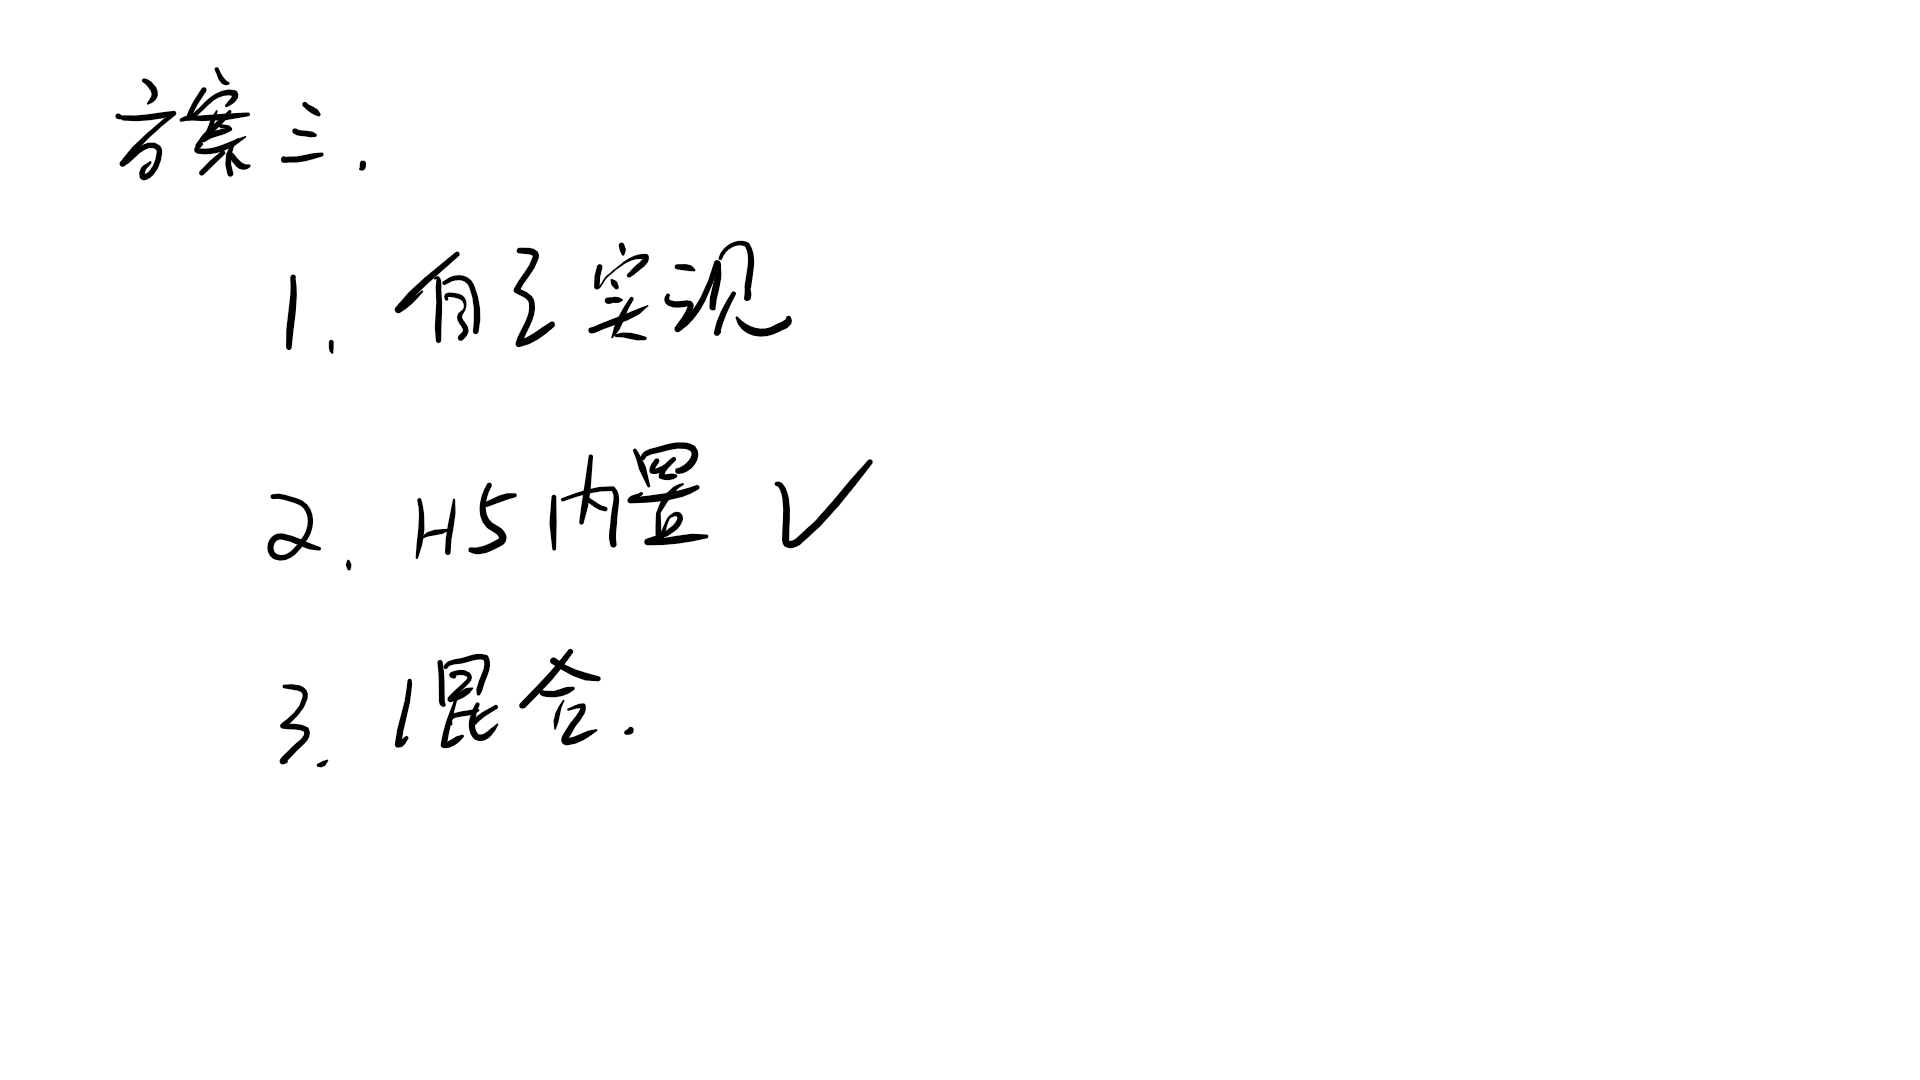 方案三.
1. 自己实现
2. H5内置 ✓
3. 混合.